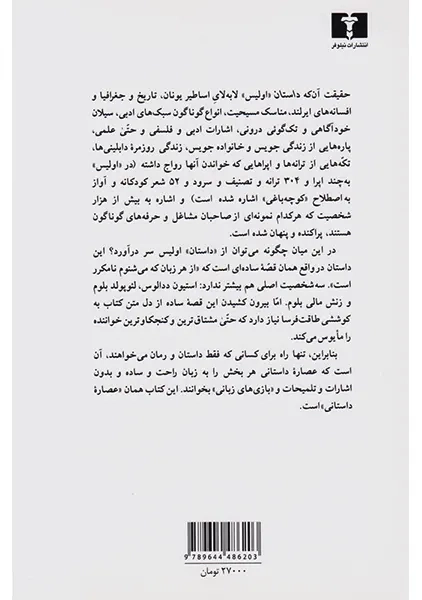 انتشارات نیلوفر
حقیقت آن‌که داستان «اولیس» لابه‌لای اساطیر یونان، تاریخ و جغرافیا و
افسانه‌های ایرلند، مناسک مسیحیت، انواع گوناگون سبک‌های ادبی، سیلان
خودآگاهی و تک‌گوئی درونی، اشارات ادبی و فلسفی و حتّیٰ علمی،
پاره‌هایی از زندگی جویس و خانواده جویس، زندگی روزمرهٔ دابلینی‌ها،
تکّه‌هایی از ترانه‌ها و اپراهایی که خواندن آنها رواج داشته (در «اولیس»
به‌چند اپرا و ۳۰۴ ترانه و تصنیف و سرود و ۵۲ شعر کودکانه و آواز
به‌اصطلاح «کوچه‌باغی» اشاره شده است) و اشاره به بیش از هزار
شخصیت که هرکدام نمونه‌ای از صاحبان مشاغل و حرفه‌های گوناگون
هستند، پراکنده و پنهان شده است.
در این میان چگونه می‌توان از «داستان» اولیس سر درآورد؟ این
داستان در واقع همان قصّهٔ ساده‌ای است که «از هر زبان که می‌شنوم نامکرر
است». سه‌شخصیت اصلی هم بیشتر ندارد: استیون ددالوس، لئوپولد بلوم
و زنش مالی بلوم. امّا بیرون کشیدن این قصهٔ ساده از دل متن کتاب به
کوششی طاقت‌فرسا نیاز دارد که حتّیٰ مشتاق‌ترین و کنجکاوترین خواننده
را مأیوس می‌کند.
بنابراین، تنها راه برای کسانی که فقط داستان و رمان می‌خواهند، آن
است که عصارهٔ داستانی هر بخش را به زبان راحت و ساده و بدون
اشارات و تلمیحات و «بازی‌های زبانی» بخوانند. این کتاب همان «عصارهٔ
داستانی» است.
9 789644 486203
۲۷۰۰۰ تومان